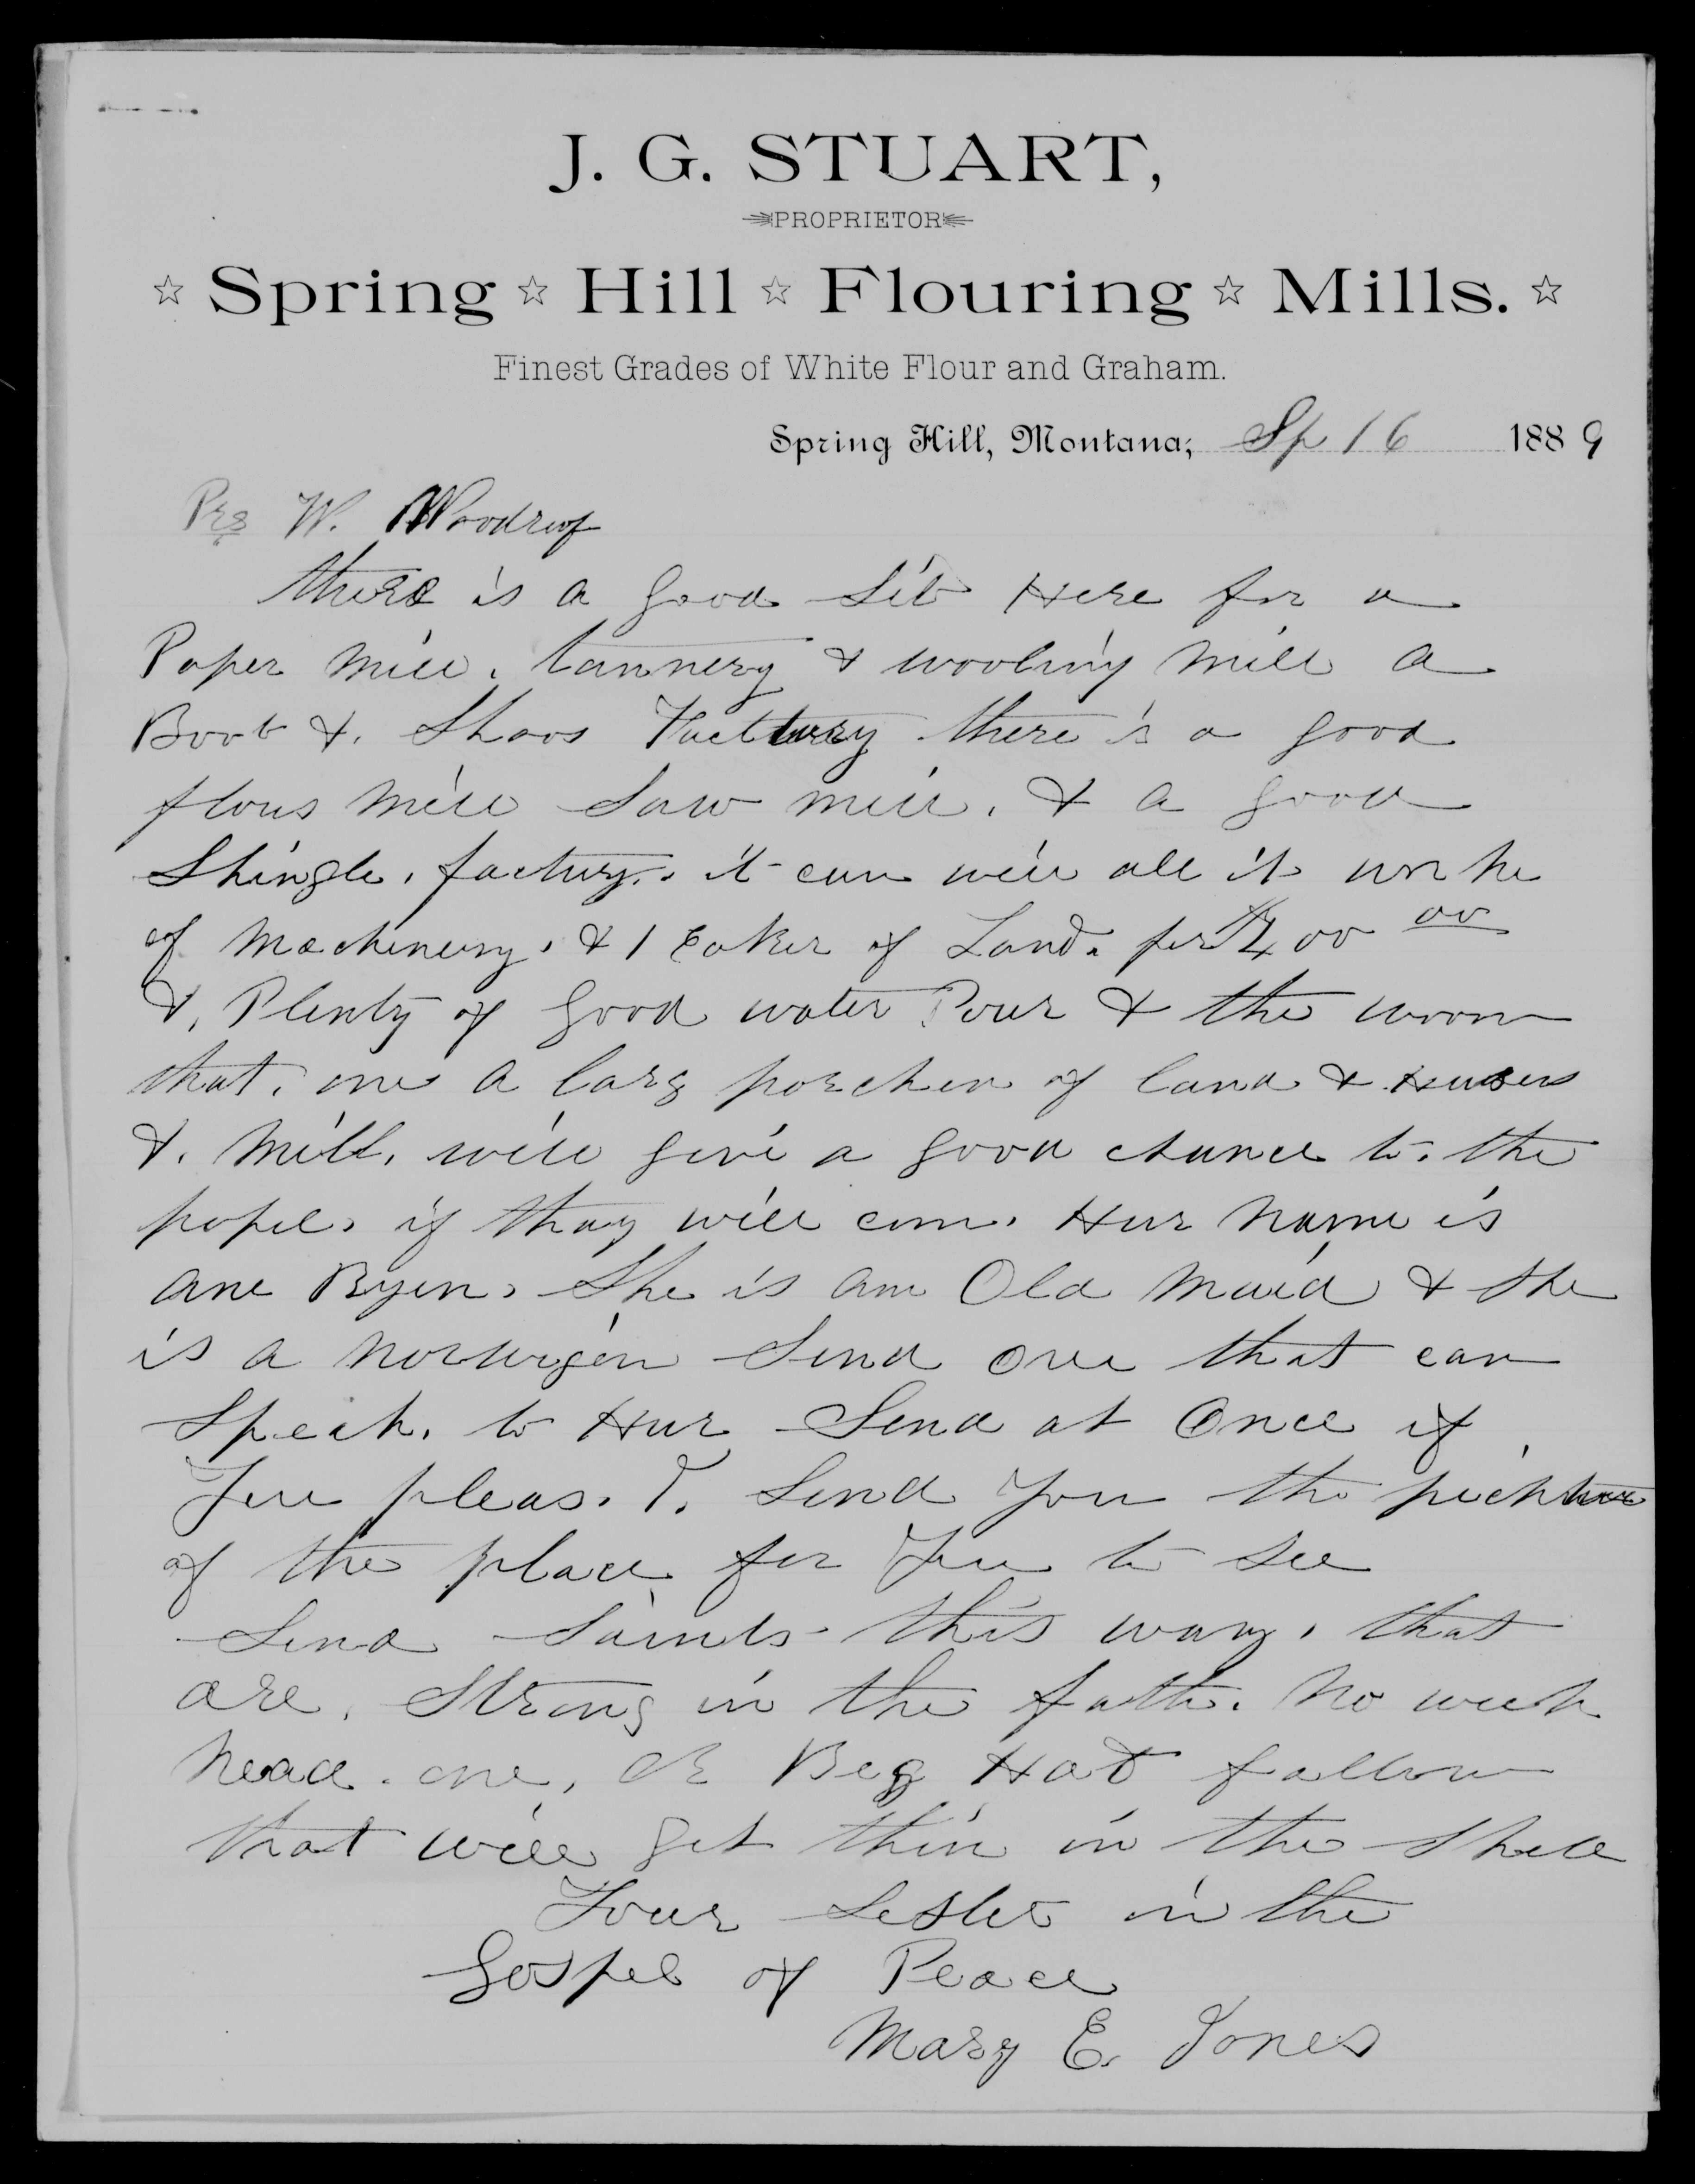 J. G. STUART,
PROPRIETOR
☆ Spring ☆ Hill ☆ Flouring ☆ Mills. ☆
Finest Grades of White Flour and Graham.
Spring Hill, Montana; Sp 16 1889
Prs W. Woodruf
there is a good Sit Here for a
Paper mill. tannery & wooling mill a
Boot & Shoos Facttury there is a good
flour mill Saw mill. & a good
Shingle. factury. it can will all it
of Machinery. & 1 Eaker of Land. for $400 00
&. Plenty of good water Pour & the woom
that. one a larg porchen of land & Houses
&. Mill. will give a good chance to. the
popel. if thay will com. Hur name is
ane Byen. She is am Old maid & she
is a norwigen Send one that can
Speak. to Hur Send at Once if
You pleas. I. Send you the pickture
of the place for You to See
Send Saints this way. that
are. Strong in the fath. no week
head. one, or Beg Hat fallow
that will get thin in the Shell
Your Sester in the
Gospel of Peace
Mary E. Jones